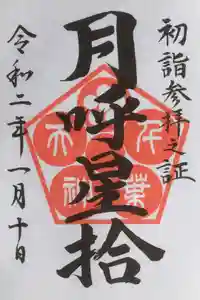 初詣参拝之証
月呼星拾
令和二年一月十日
千葉
天神